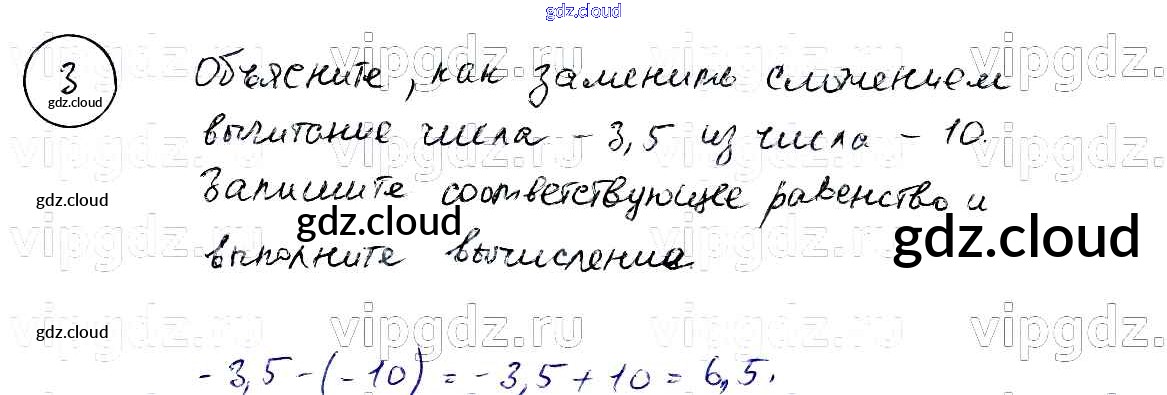 gdz.cloud
3
gdz.cloud
Объясните, как заменить сложением
вычитание числа - 3,5 из числа - 10.
Запишите соответствующее равенство и
выполните вычисления.
gdz.cloud
gdz.cloud
gdz.cloud
gdz.cloud
- 3,5 - (- 10) = - 3,5 + 10 = 6,5.
vipgdz.ru vipgdz.ru vipgdz.ru vipgdz.ru
vipgdz.ru vipgdz.ru vipgdz.ru vipgdz.ru
vipgdz.ru vipgdz.ru vipgdz.ru vipgdz.ru
vipgdz.ru vipgdz.ru vipgdz.ru vipgdz.ru